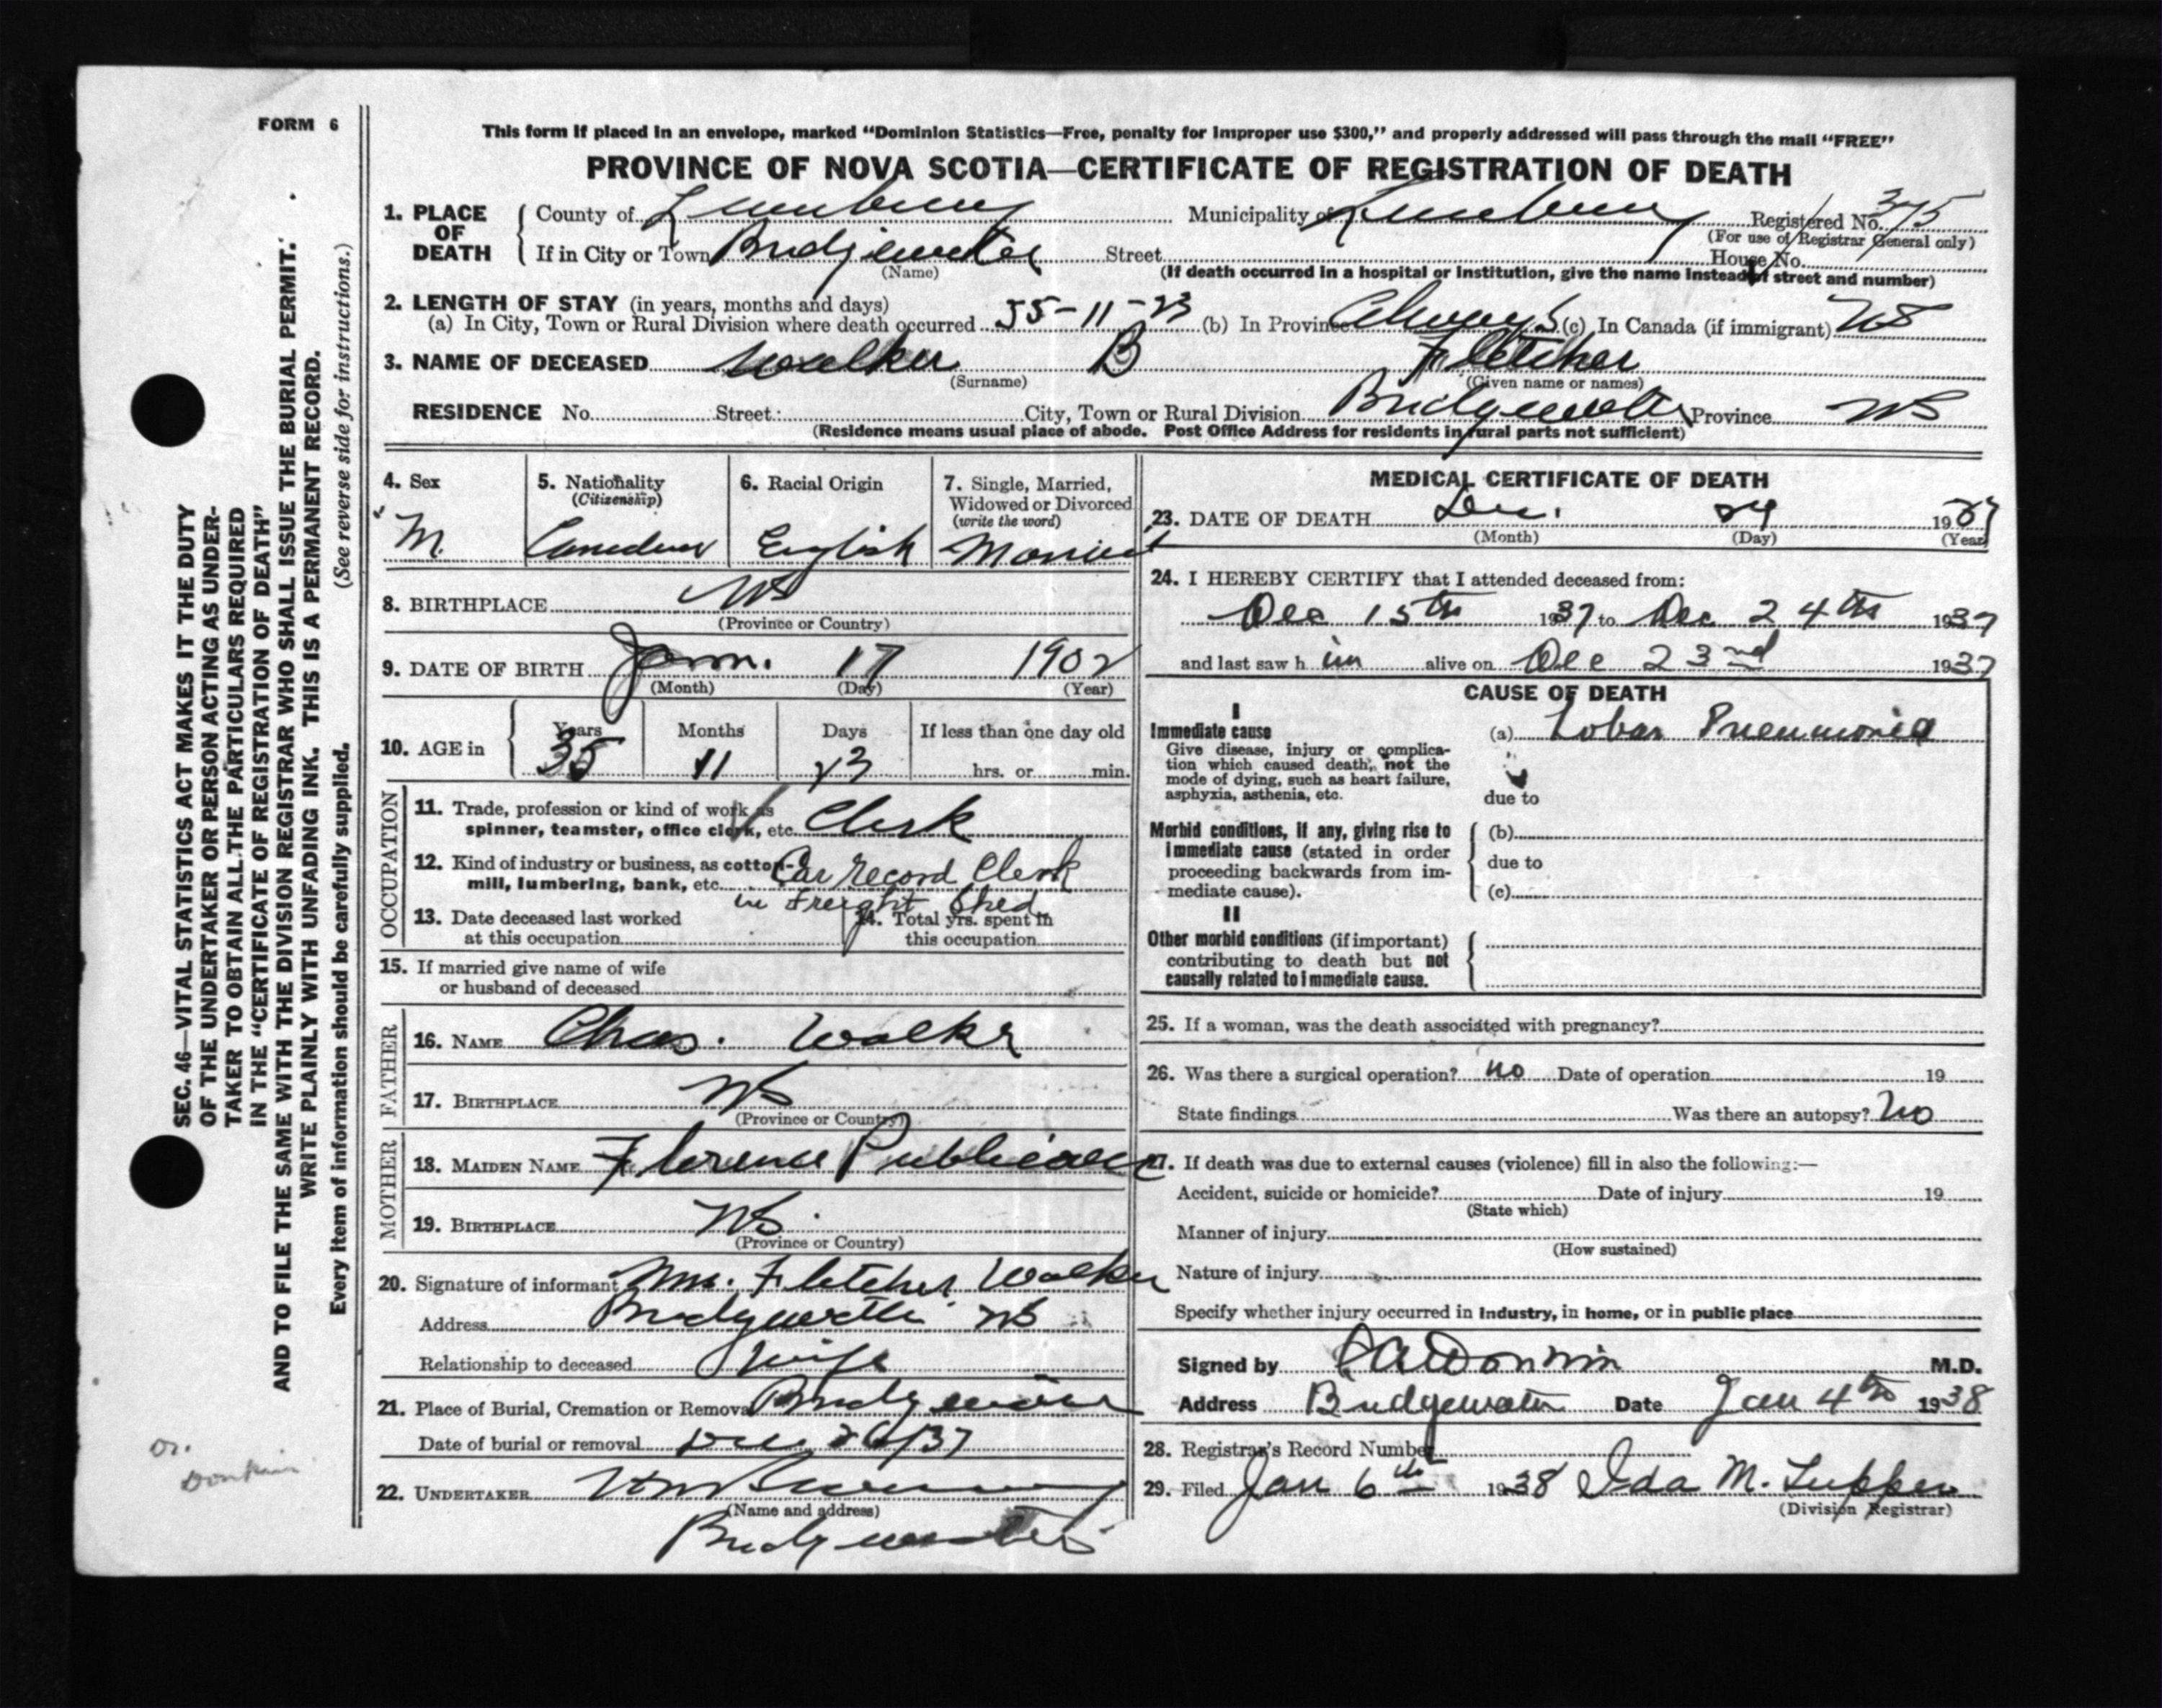 FORM 6
This form if placed in an envelope, marked "Dominion Statistics—Free, penalty for improper use $300," and properly addressed will pass through the mail "FREE"
PROVINCE OF NOVA SCOTIA—CERTIFICATE OF REGISTRATION OF DEATH
1. PLACE OF DEATH County of Lunenburg Municipality of Lunenburg Registered No. 375
(For use of Registrar General only)
If in City or Town Bridgewater Street House No.
(Name) (If death occurred in a hospital or institution, give the name instead of street and number)
2. LENGTH OF STAY (in years, months and days)
(a) In City, Town or Rural Division where death occurred 35-11-23 (b) In Province Always (c) In Canada (if immigrant) NS
3. NAME OF DECEASED Walker B Fletcher
(Surname) (Given name or names)
RESIDENCE No. Street: City, Town or Rural Division Bridgewater Province NS
(Residence means usual place of abode. Post Office Address for residents in rural parts not sufficient)
4. Sex
M.
5. Nationality
(Citizenship)
Canadian
6. Racial Origin
English
7. Single, Married,
Widowed or Divorced
(write the word)
Married
8. BIRTHPLACE NS
(Province or Country)
9. DATE OF BIRTH Jan. 17 1902
(Month) (Day) (Year)
10. AGE in Years Months Days If less than one day old
35 11 23 hrs. or min.
OCCUPATION
11. Trade, profession or kind of work as
spinner, teamster, office clerk, etc. Clerk
12. Kind of industry or business, as cotton-
mill, lumbering, bank, etc. Car record Clerk
in Freight Shed
13. Date deceased last worked
at this occupation
14. Total yrs. spent in
this occupation
15. If married give name of wife
or husband of deceased
FATHER
16. NAME Chas. Walker
17. BIRTHPLACE NS
(Province or Country)
MOTHER
18. MAIDEN NAME Florence Publicover
19. BIRTHPLACE NS.
(Province or Country)
20. Signature of informant Mrs. Fletcher Walker
Address Bridgewater NS
Relationship to deceased Wife
21. Place of Burial, Cremation or Removal Bridgewater
Date of burial or removal Dec 26/37
22. UNDERTAKER
(Name and address)
Bridgewater
MEDICAL CERTIFICATE OF DEATH
23. DATE OF DEATH Dec. 24 1937
(Month) (Day) (Year)
24. I HEREBY CERTIFY that I attended deceased from:
Dec 15th 1937 to Dec 24th 1937
and last saw him alive on Dec 23rd 1937
CAUSE OF DEATH
I
Immediate cause
Give disease, injury or complica-
tion which caused death, not the
mode of dying, such as heart failure,
asphyxia, asthenia, etc.
(a) Lobar Pneumonia
due to
Morbid conditions, if any, giving rise to
immediate cause (stated in order
proceeding backwards from im-
mediate cause).
(b)
due to
(c)
II
Other morbid conditions (if important)
contributing to death but not
causally related to immediate cause.
25. If a woman, was the death associated with pregnancy?
26. Was there a surgical operation? no Date of operation 19
State findings Was there an autopsy? no
27. If death was due to external causes (violence) fill in also the following:—
Accident, suicide or homicide? Date of injury 19
(State which)
Manner of injury
(How sustained)
Nature of injury
Specify whether injury occurred in industry, in home, or in public place
Signed by M.D.
Address Bridgewater Date Jan 4th 1938
28. Registrar's Record Number
29. Filed Jan 6th 1938 Ida M. Tupper
(Division Registrar)
SEC. 46—VITAL STATISTICS ACT MAKES IT THE DUTY
OF THE UNDERTAKER OR PERSON ACTING AS UNDER-
TAKER TO OBTAIN ALL THE PARTICULARS REQUIRED
IN THE "CERTIFICATE OF REGISTRATION OF DEATH"
AND TO FILE THE SAME WITH THE DIVISION REGISTRAR WHO SHALL ISSUE THE BURIAL PERMIT.
WRITE PLAINLY WITH UNFADING INK. THIS IS A PERMANENT RECORD.
Every item of information should be carefully supplied. (See reverse side for instructions.)
Dr.
Donkin